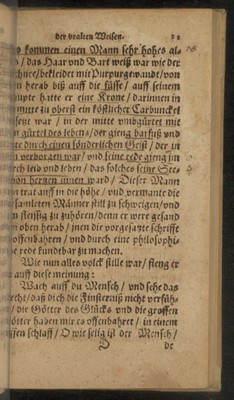 der uralten Weisen. 21
s kommen einen Mann sehr hohes al-
, das Haar und Bart weiß war wie der
chnee/bekleidet mit Purpurgewandt/von
n herab biß auff die füsse/ auff seinem
upte hatte er eine Krone/ darinnen in
mitte zu oberst ein köstlicher Carbunckel
setzt war/ in der mitte umbgürtet mit
n gürtel des lebens/ der gieng barfuß und
te durch einen sonderlichen Geist/ der in
verborgen war/ und seine rede gieng im
rch leib und leben/ das solches seine See-
on hertzen innen ward/ Dieser Mann
n trat auff in die höhe/ und vermante die
samleten Männer still zu schweigen/ und
n fleissig zu zuhören/ denn er were gesand
n oben herab/ jnen die vorgesatzte schriffte
offenbahren/ und durch eine philosophi-
e rede kundebar zu machen.
Wie nun alles volck stille war/ fieng er
auff diese meinung:
Wach auff du Mensch/ und sehe das
echt/ daß dich die Finsternüß nicht verfüh-
/ die Götter des Glücks und die grossen
ötter haben mir es offenbahret/ in einem
ffen schlaff/ O wie selig ist der Mensch/
D de